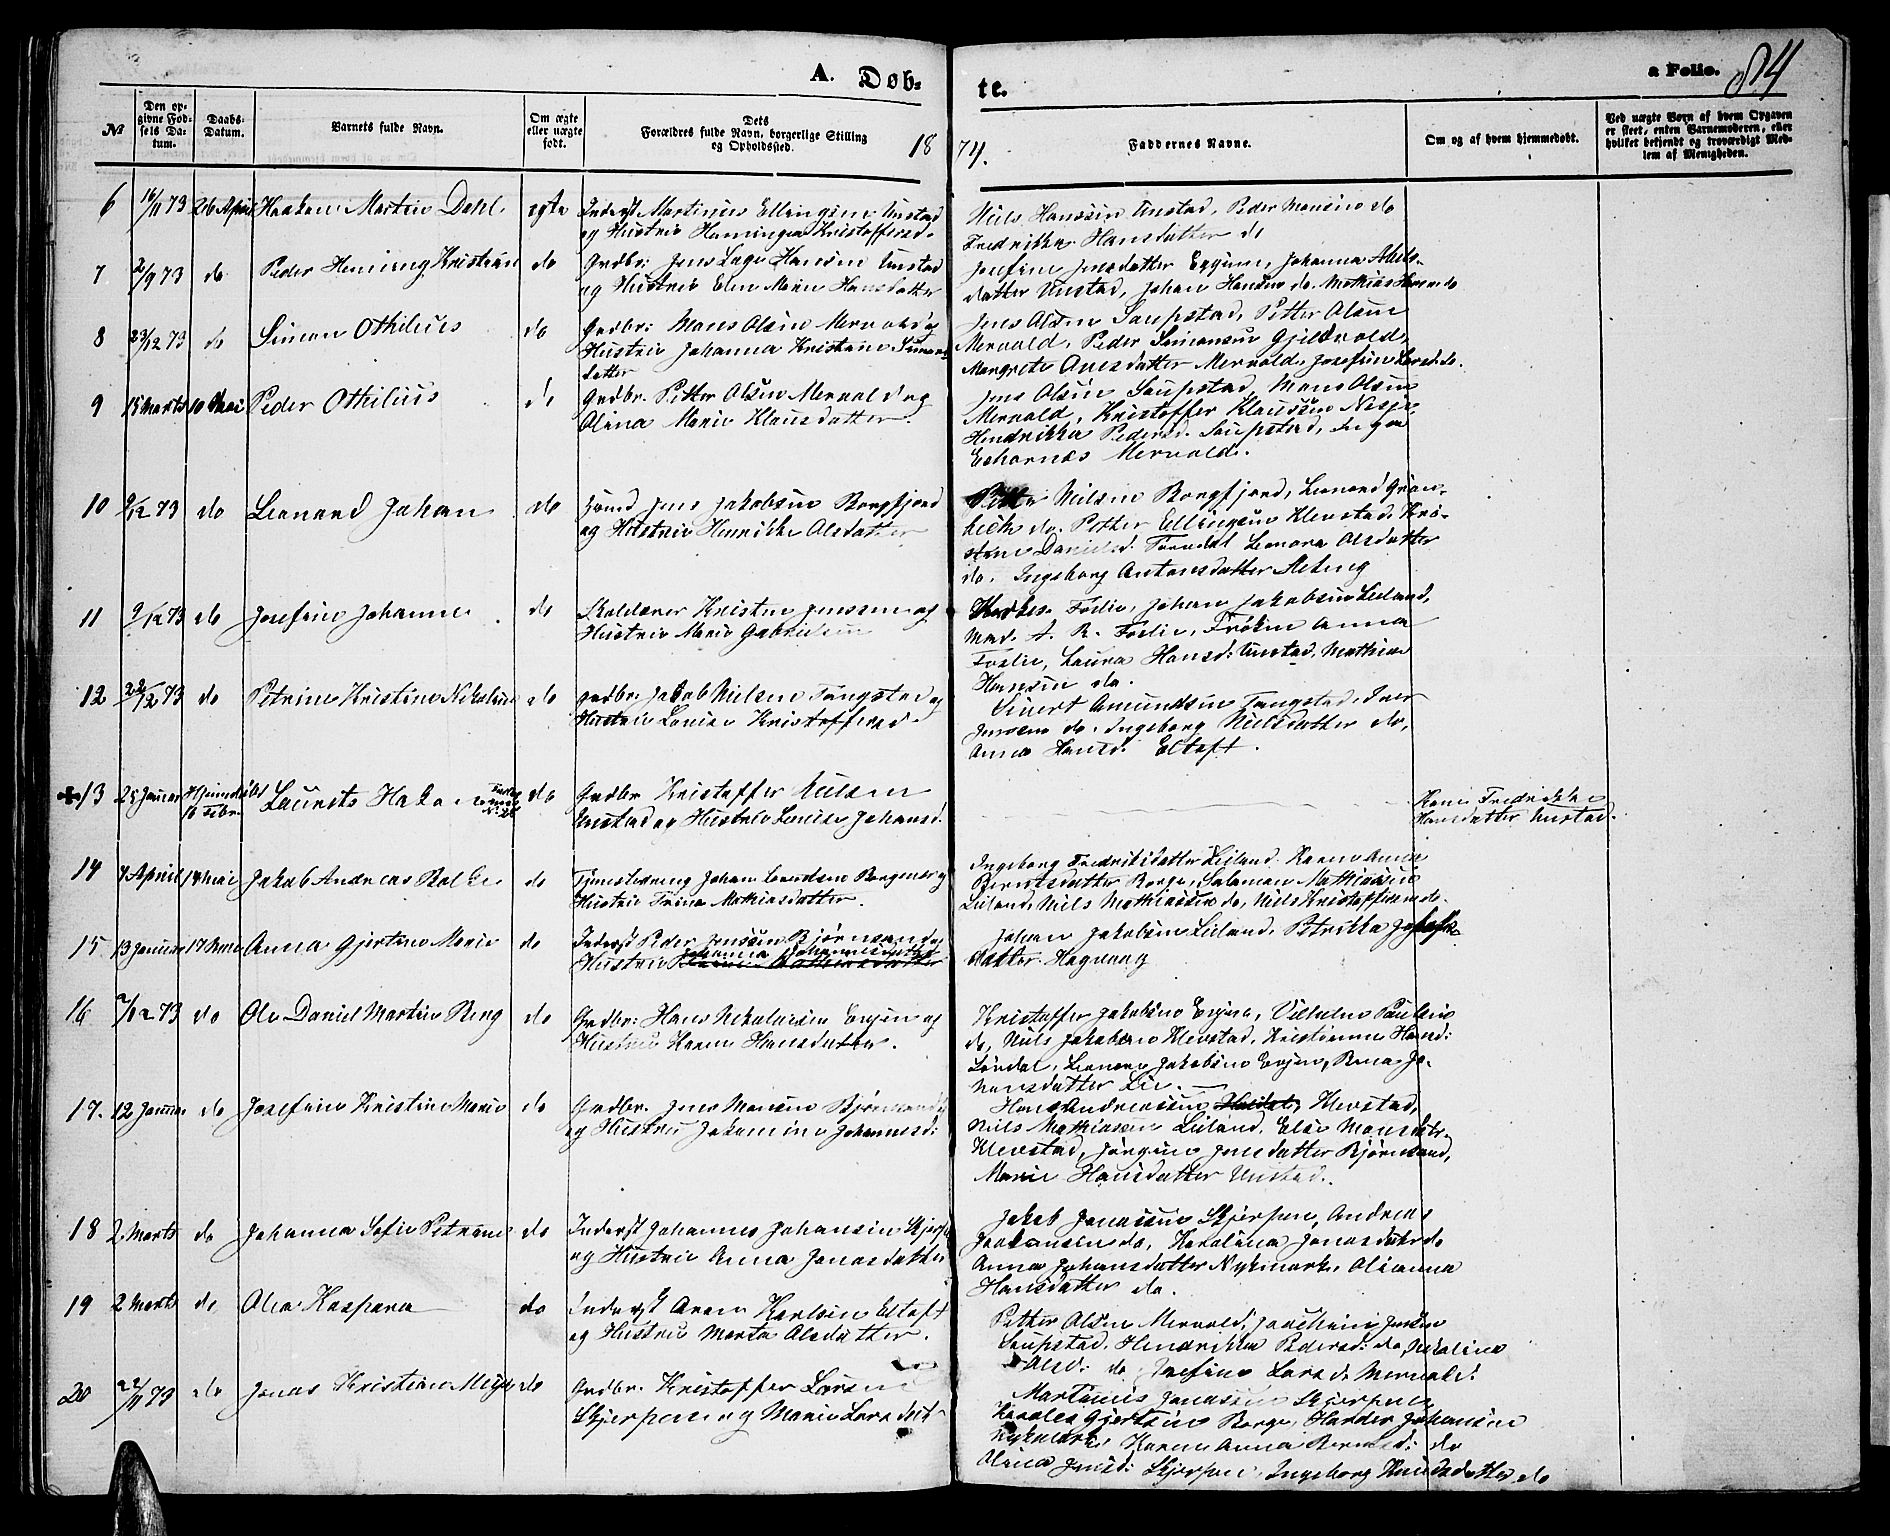 A. Døbte.
a Folio. 84
№
Den opgivne Fødsels Datum.
Daabs-Datum.
Barnets fulde Navn.
Om ægte eller uægte født.
Dets Forældres fulde Navn, borgerlige Stilling og Opholdssted.
1874.
Faddernes Navne.
Om og af hvem hjemmedøbt.
Ved uægte Born af hvem Opgaven er skeet, enten Barnemoderen, eller hvilket bekjendt og troværdigt Medlem af Menigheden.
6 16/11 73 26 April Haakon Martin Dahl egte Inderst Martinus Ellingsen Unstad
og Hustru Henningea Kristoffersd.
Niels Hansen Unstad, Peder Monsen do
Fredrikke Hansdatter do
7 2/9 73 do Peder Hening Kristian do Grdbr: Jens Lage Hansen Unstad
og Hustru Elen Marie Hansdatter
Josefine Jensdatter Eggum, Johanna Abels-
datter Unstad, Johan Hansen do, Mathias Hansen do
8 23/12 73 do Simon Othilius do Grdbr: Mons Olsen Mervold og
Hustru Johanna Kristine Simons-
datter
Jens Olsen Saupstad, Petter Olsen
Mervold, Peder Simonsen Gjelsvold,
Margrete Anesdatter Mervold, Josefine Larsd. do.
9 15 Marts 10 Mai Peder Othilius do Grdbr. Petter Olsen Mervold og
Olina Marie Klausdatter.
Jens Olsen Saupstad, Mons Olsen
Mervold, Kristoffer Klausen Nesje
Hendrikka Pedersd. Saupstad, Inga
Mervold.
10 9/12 73 do Leonard Johan do Jens Jakobsen Borgfjord
og Hustru Henrikke Olsdatter
Nilsen Borgfjord, Leonard Grøn-
beck do. Petter Ellingsen Klevstad, Kri-
stine Danielsd. Leonora Olsdatter
do. Ingeborg Antonsdatter
11 9/12 73 do Josefine Johanne do Kristen Jenssen og
Hustru Marie Gabrielsen
Foslie, Johan Jakobsen Leiland,
Mad. A. R. Foslie, Frøken Anna
Foslie, Laura Hansd: Unstad, Mathias
Hansen do.
12 22/12 73 do Petrine Kristine Nikoline do Grdbr: Jakob Nielsen Tangstad og
Hustru Lovise Kristoffersd.
Sivert Amundsen Tangstad, Iver
Jenssen do. Ingeborg Nielsdatter do,
Anna Hansd: Eltoft.
+13 25 Januar Hjemmedøbt
16 Febr. Laurits Hakon do Grdbr Kristoffer Nilsen
Unstad og Hustru Lovise Johansd.
Karen Fredrikke
Hansdatter Unstad.
14 7 April 14 Mai Jakob Andreas Balke do Johan Berntsen Borge og
Hustru Trine Mathiasdatter.
Ingeborg Fredriksdatter Leiland. Karen Anna
Berntsdatter Borge, Salamon Mathiassen
Leiland, Niels Mathiassen do, Niels Kristoffersen do.
15 13 Januar 17 Mai Anna Gjertine Marie do Inderst Peder Jenssen Bjørnsand og
Hustru Johanna Johannesdatter
Johan Jakobsen Leiland, Petrikka
datter
16 2/12 73 do Ole Daniel Martin Berg do Grdbr: Hans Nikolaisen Eggum og
Hustru Karen Hansdatter.
Kristoffer Jakobsen Eggum, Vilhelm Paulsen
do, Niels Jakobsen Klevstad, Kristianne Hansd:
Leonora Jakobsen Eggum, Berea Jo-
hansdatter Lie.
17. 12 Januar do Josefine Kristine Marie do Grdbr. Jens Monsen Bjørnsand
og Hustru Jakomine Johannesd:
Hans Andreassen Klevstad,
Niels Mathiassen Leiland, Elsie Monsdtr.
Klevstad, Jørgine Jensdatter Bjørnsand,
Marie Hansdatter Unstad.
18 2 Marts do Johanna Sofie Petrine do Inderst Johannes Johansen Skjerpen
og Hustru Anna Jonasdatter
Jakob Jonassen Skjerpen, Andreas
Joakimsen do, Karolina Jonasdatter do
Anna Johansdatter Nykmark, Olianna
Hansdatter do.
19 2 Marts do Olea Kaspara do Inderst Aron Karlsen Eltoft
og Hustru Marta Olsdatter.
Petter Olsen Mervold, Joachim Jensen
Saupstad. Hendrikka Pedersd: do, Nikoline
Olsd: do Josefine Larsd: Mervold:
20 22/11 73 do Jonas Kristian Meyer do Grdbr. Kristoffer Larsen
Skjerpen og Marie Larsdtr
Martinus Jonassen Skjerpen,
Gjertsen Borge, Harder Johansen
Nykmark, Karen Anna Berntsd: do
Olina Jensd: Skjerpen, Ingeborg Knudsdatter do